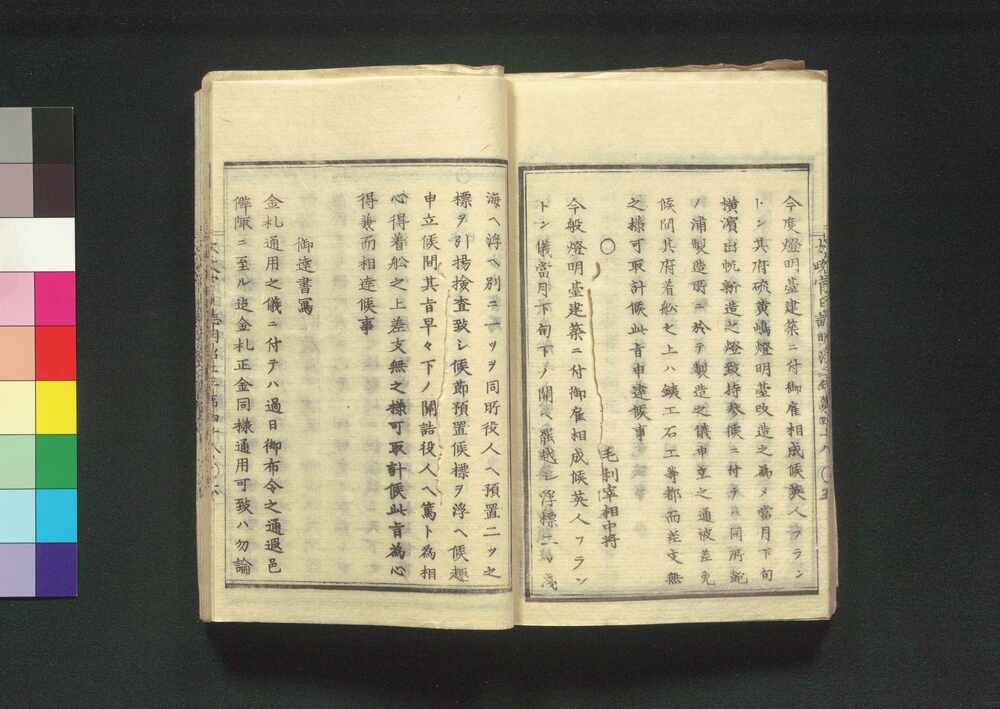 今度燈明臺建築ニ付御雇相成候英人フラン
トン其府硫黄嶋燈明臺改造之為メ當月下旬
横濱出帆新造之燈籠持参候ニ付テハ同所
ノ浦製造所ニ於テ製造之儀申立之通被差免
候間其府着舩之上ハ鐵工石工等都而差支無
之様可取計候此旨申達候事
〇 毛利宰相中将
今般燈明臺建築ニ付御雇相成候英人フラン
トン儀當月下旬下ノ關ヘ罷越シ浮標二ツ淺
海ヘ浮ヘ別ニ一ツヲ同所役人ヘ預置二ツ之
標ヲ引揚檢査致シ候節預置候標ヲ浮ヘ候趣
申立候間其旨早々下ノ關詰役人ヘ篤ト為相
心得着舩之上差支無之様可取計候此旨為心
得兼而相達候事
御達書寫
金札通用之儀ニ付テハ過日御布令之通遐邑
僻陬ニ至ル迄金札正金同様通用可致ハ勿論